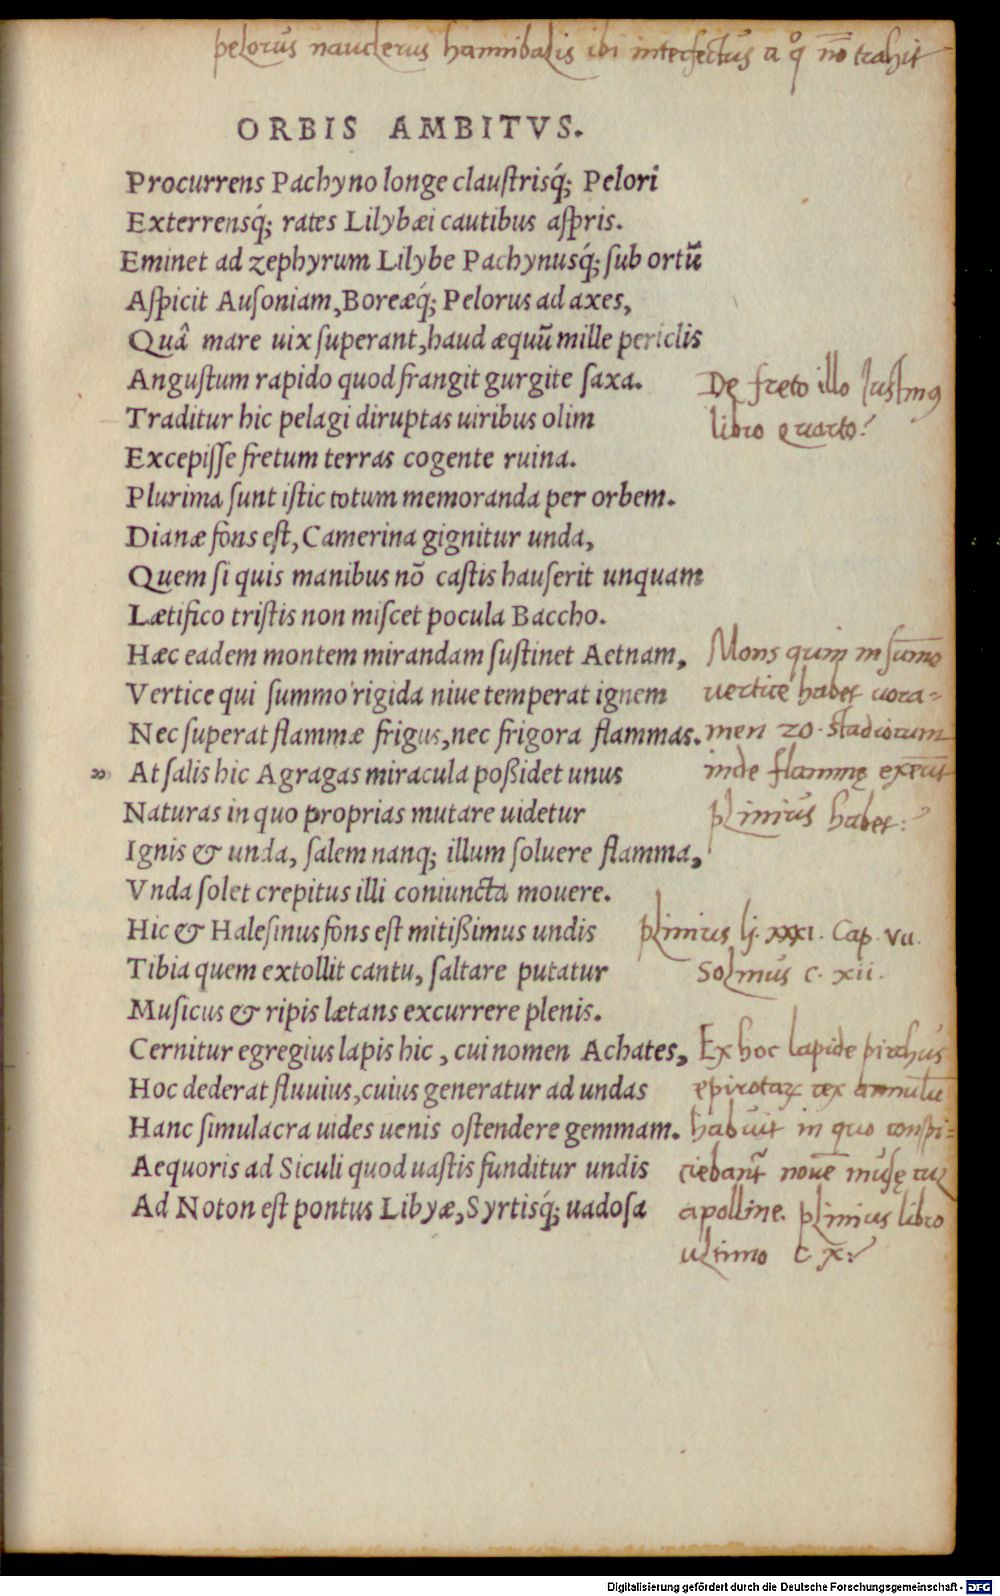 pelorus nauclerus hannibalis ibi interfectus a q° nōe trahit
ORBIS AMBITVS.
Procurrens Pachyno longe clauſtrisq́; Pelori
Exterrensq́; rates Lilybæi cautibus aſpris.
Eminet ad zephyrum Lilybe Pachynusq́; ſub ortū
Aſpicit Auſoniam, Boreæq́; Pelorus ad axes,
Quâ mare uix ſuperant, haud æquū mille periclis
Anguſtum rapido quod frangit gurgite ſaxa.
De freto illo Justinus
libro quarto.
Traditur hic pelagi diruptas uiribus olim
Excepiſſe fretum terras cogente ruina.
Plurima ſunt iſtic totum memoranda per orbem.
Dianæ fons eſt, Camerina gignitur unda,
Quem ſi quis manibus nō caſtis hauſerit unquam
Lætifico triſtis non miſcet pocula Baccho.
Hæc eadem montem mirandam ſuſtinet Aetnam,
Vertice qui ſummo rigida niue temperat ignem
Nec ſuperat flammæ frigus, nec frigora flammas.
Mons quim in sumo
vertice habet vora=
men 20 stadiorum
inde flammę
plinius habet:
At ſalis hic Agragas miracula poßidet unus
Naturas in quo proprias mutare uidetur
Ignis & unda, ſalem nanq; illum ſoluere flamma,
Vnda ſolet crepitus illi coniuncta mouere.
Hic & Haleſinus fons eſt mitißimus undis
Tibia quem extollit cantu, ſaltare putatur
Muſicus & ripis lætans excurrere plenis.
plinius lj. xxxi. Cap. vii.
Solinus c. xii.
Cernitur egregius lapis hic, cui nomen Achates,
Hoc dederat fluuius, cuius generatur ad undas
Hanc ſimulacra uides uenis oſtendere gemmam.
Aequoris ad Siculi quod uaſtis funditur undis
Ad Noton eſt pontus Libyæ, Syrtisq́; uadoſa
Ex hoc lapide pirrhus
epirotaꝝ rex annulū
habuit in quo conspi=
ciebant᷑ noue᷑ musę cuꝫ
apolline. plinius libro
ultimo c x.
Digitalisierung gefördert durch die Deutsche Forschungsgemeinschaft - DFG